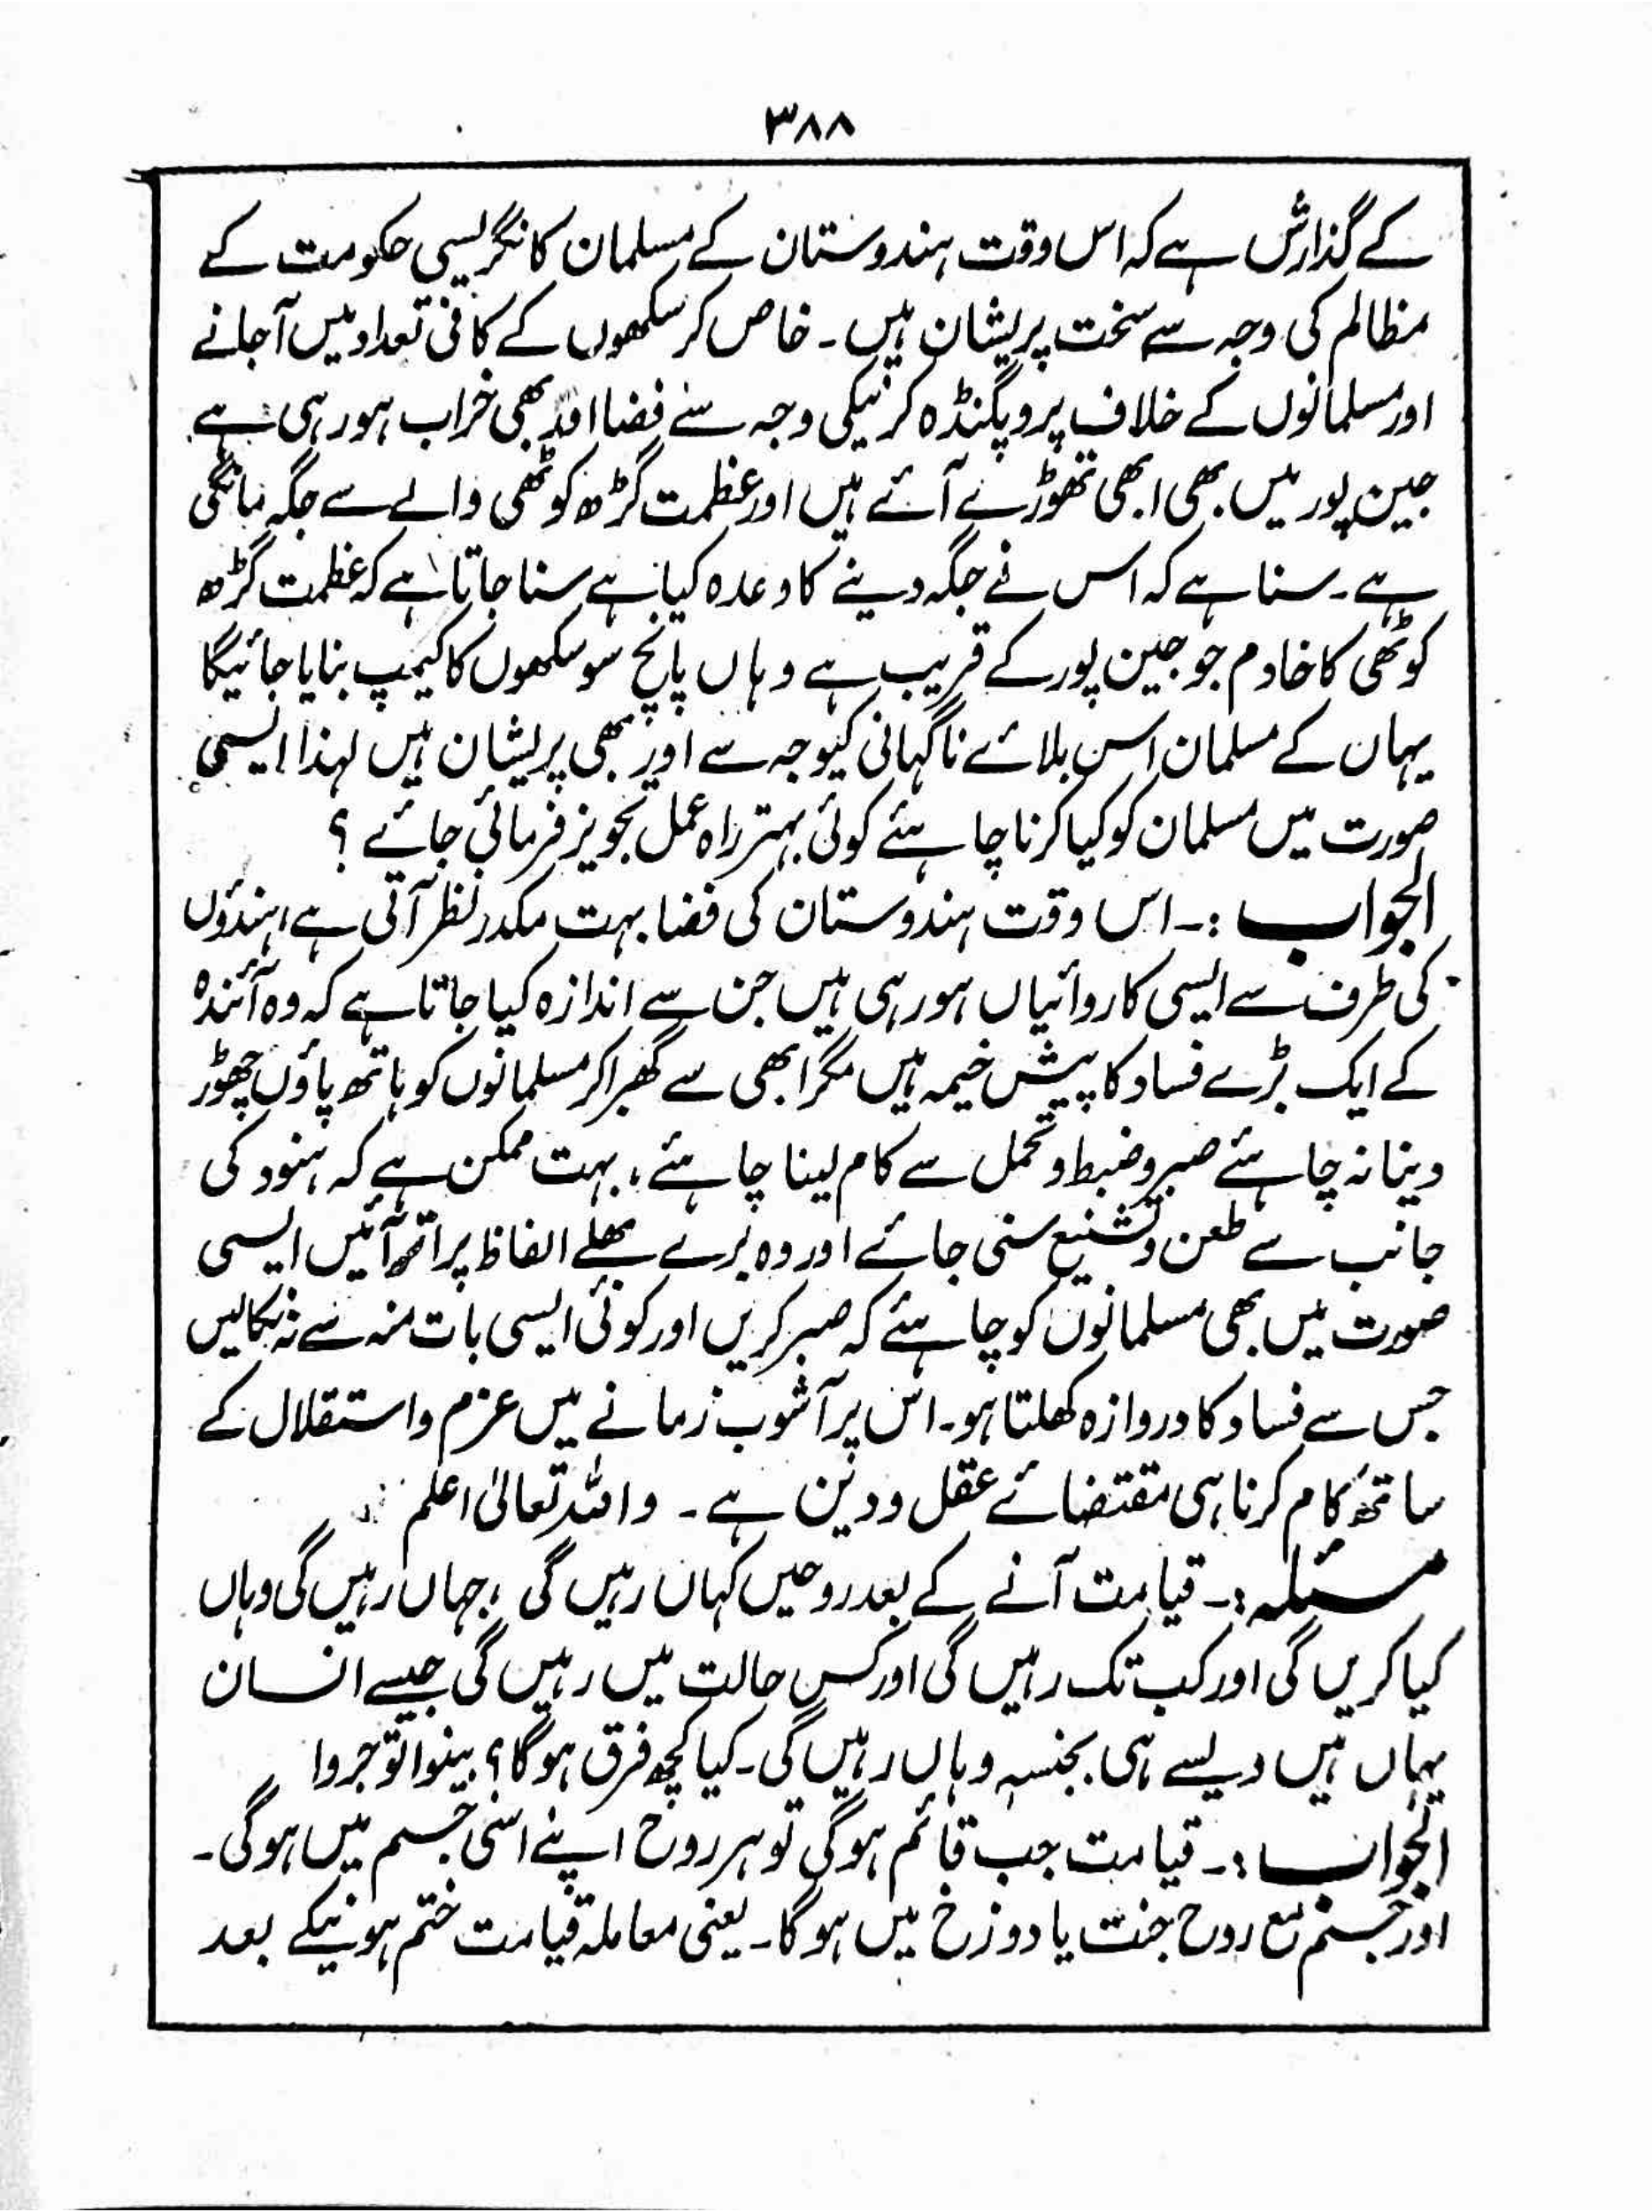 ۳۸۸
کے گذارش ہے کہ اس وقت ہندوستان کے مسلمان کانگریسی حکومت کے
مظالم کی وجہ سے سخت پریشان ہیں ۔ خاص کر سکھوں کے کافی تعداد میں آجانے
اور مسلمانوں کے خلاف پروپگنڈہ کرنیکی وجہ سے فضا اور بھی خراب ہو رہی ہے
جین پور میں بھی ابھی تھوڑے آئے ہیں اور عظمت گڑھ کوٹھی والے سے جگہ مانگی
ہے ۔ سنا ہے کہ اس نے جگہ دینے کا وعدہ کیا ہے سنا جاتا ہے کہ عظمت گڑھ
کوٹھی کا خادم جو جین پور کے قریب ہے وہاں پانچ سو سکھوں کا کیمپ بنایا جائیگا
یہاں کے مسلمان اس بلائے ناگہانی کیوجہ سے اور بھی پریشان ہیں لہذا ایسی
صورت میں مسلمان کو کیا کرنا چاہئے کوئی بہتر راہ عمل تجویز فرمائی جائے ؟
الجواب :۔ اس وقت ہندوستان کی فضا بہت مکدر نظر آتی ہے ، ہندؤں
کی طرف سے ایسی کاروائیاں ہو رہی ہیں جن سے اندازہ کیا جاتا ہے کہ وہ آئندہ
کے ایک بڑے فساد کا پیش خیمہ ہیں مگر ابھی سے گھبرا کر مسلمانوں کو ہاتھ پاؤں چھوڑ
دینا نہ چاہئے صبر و ضبط و تحمل سے کام لینا چاہئے ، بہت ممکن ہے کہ ہنود کی
جانب سے طعن و تشنیع سنی جائے اور وہ برے بھلے الفاظ پر اتر آئیں ایسی
صورت میں بھی مسلمانوں کو چاہئے کہ صبر کریں اور کوئی ایسی بات منہ سے نہ نکالیں
جس سے فساد کا دروازہ کھلتا ہو ۔ اس پر آشوب زمانے میں عزم و استقلال کے
ساتھ کام کرنا ہی مقتضائے عقل و دین ہے ۔ واللہ تعالیٰ اعلم
مسئلہ :۔ قیامت آنے کے بعد روحیں کہاں رہیں گی ، جہاں رہیں گی وہاں
کیا کریں گی اور کب تک رہیں گی اور کس حالت میں رہیں گی جیسے انسان
یہاں ہیں ویسے ہی بجنسہ وہاں رہیں گی ۔ کیا کچھ فرق ہوگا ؟ بینوا توجروا
الجواب :۔ قیامت جب قائم ہوگی تو ہر روح اپنے اسی جسم میں ہوگی ۔
اور جسم مع روح جنت یا دوزخ میں ہوگا ۔ یعنی معاملہ قیامت ختم ہونیکے بعد